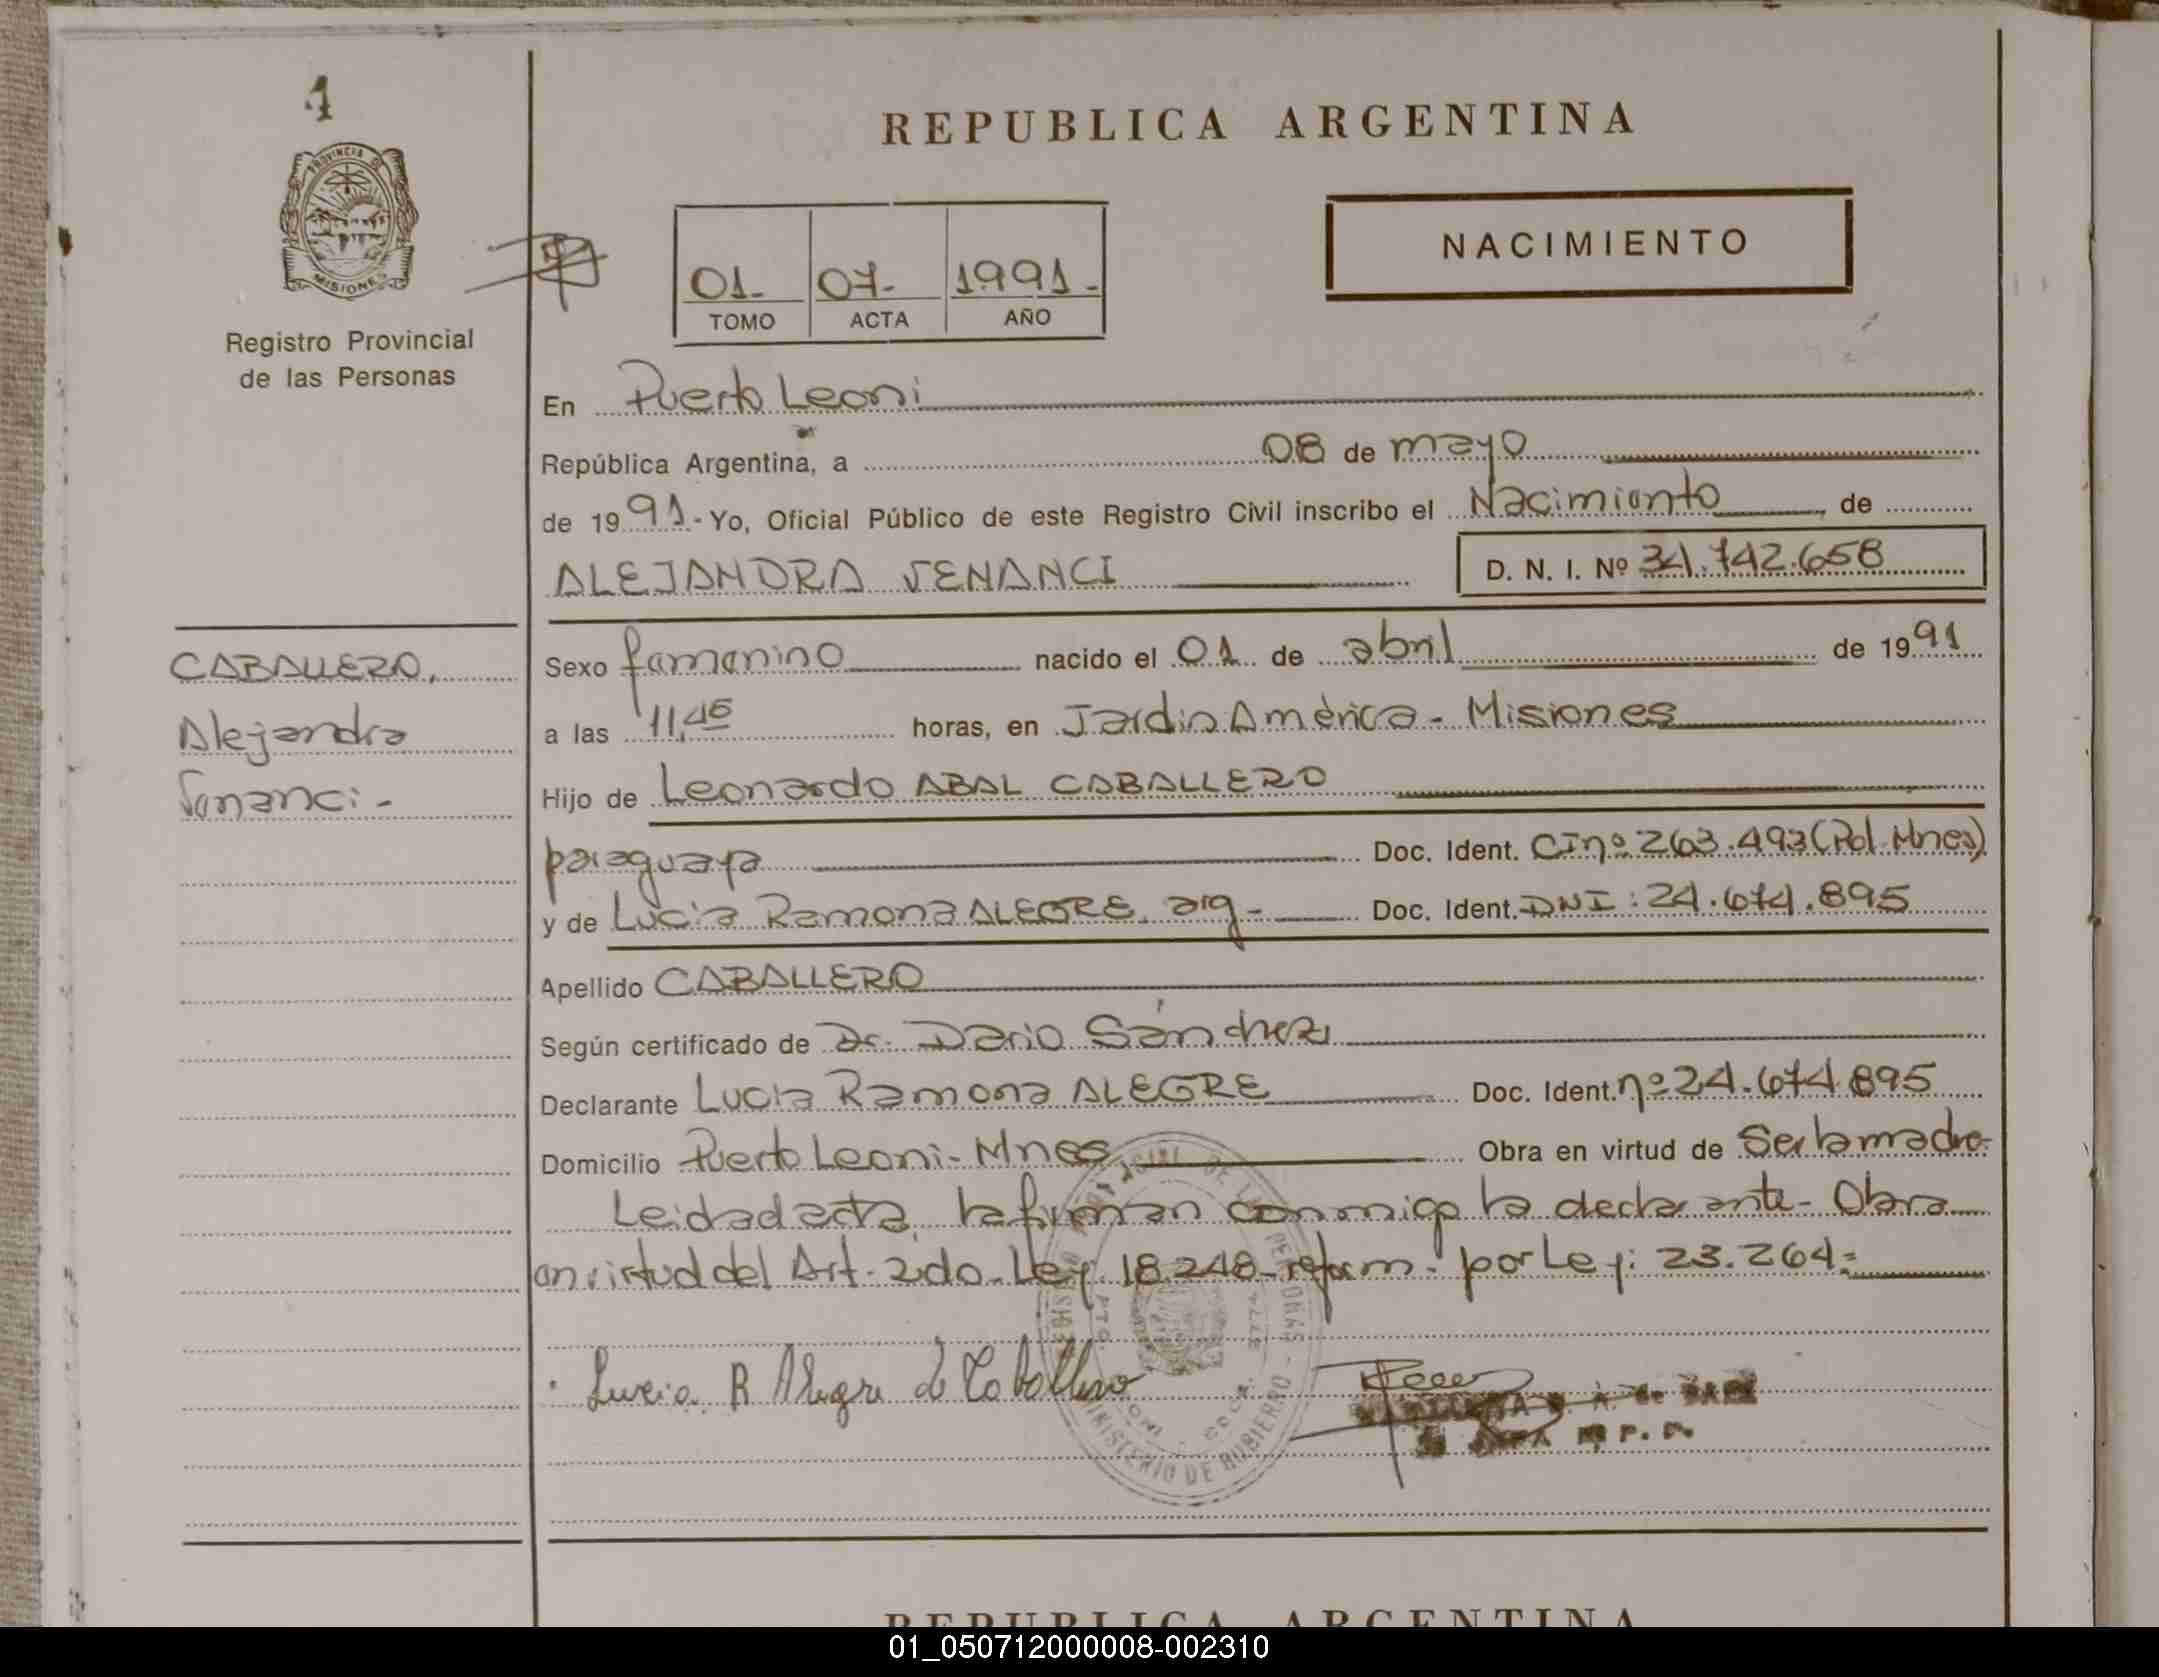 1
PROVINCIA DE
MISIONES
Registro Provincial
de las Personas
REPUBLICA ARGENTINA
NACIMIENTO
01- 07- 1991-
TOMO ACTA AÑO
En Puerto Leoni
República Argentina, a 08 de mayo
de 1991- Yo, Oficial Público de este Registro Civil inscribo el Nacimiento, de
ALEJANDRA SENANCI
D. N. I. Nº 34.742.658
CABALLERO,
Alejandra
Senanci-
Sexo femenino nacido el 01 de abril de 1991
a las 11,45 horas, en Jardin América- Misiones
Hijo de Leonardo ABAL CABALLERO
paraguaya Doc. Ident. CInº 263.493(Pol. Mnes)
y de Lucia Ramona ALEGRE, arg- Doc. Ident. DNI: 24.674.895
Apellido CABALLERO
Según certificado de Dr. Dario Sánchez
Declarante Lucia Ramona ALEGRE Doc. Ident. nº 24.674.895
Domicilio Puerto Leoni- Mnes, Obra en virtud de Ser la madre-
Leida el acta, la firman conmigo la declarante- Obra
en virtud del Art. 2do. Ley. 18.248- reform. por Ley: 23.264=
Lucia R Alegre de Caballero
MINISTERIO DE GOBIERNO
REPUBLICA ARGENTINA
01_050712000008-002310